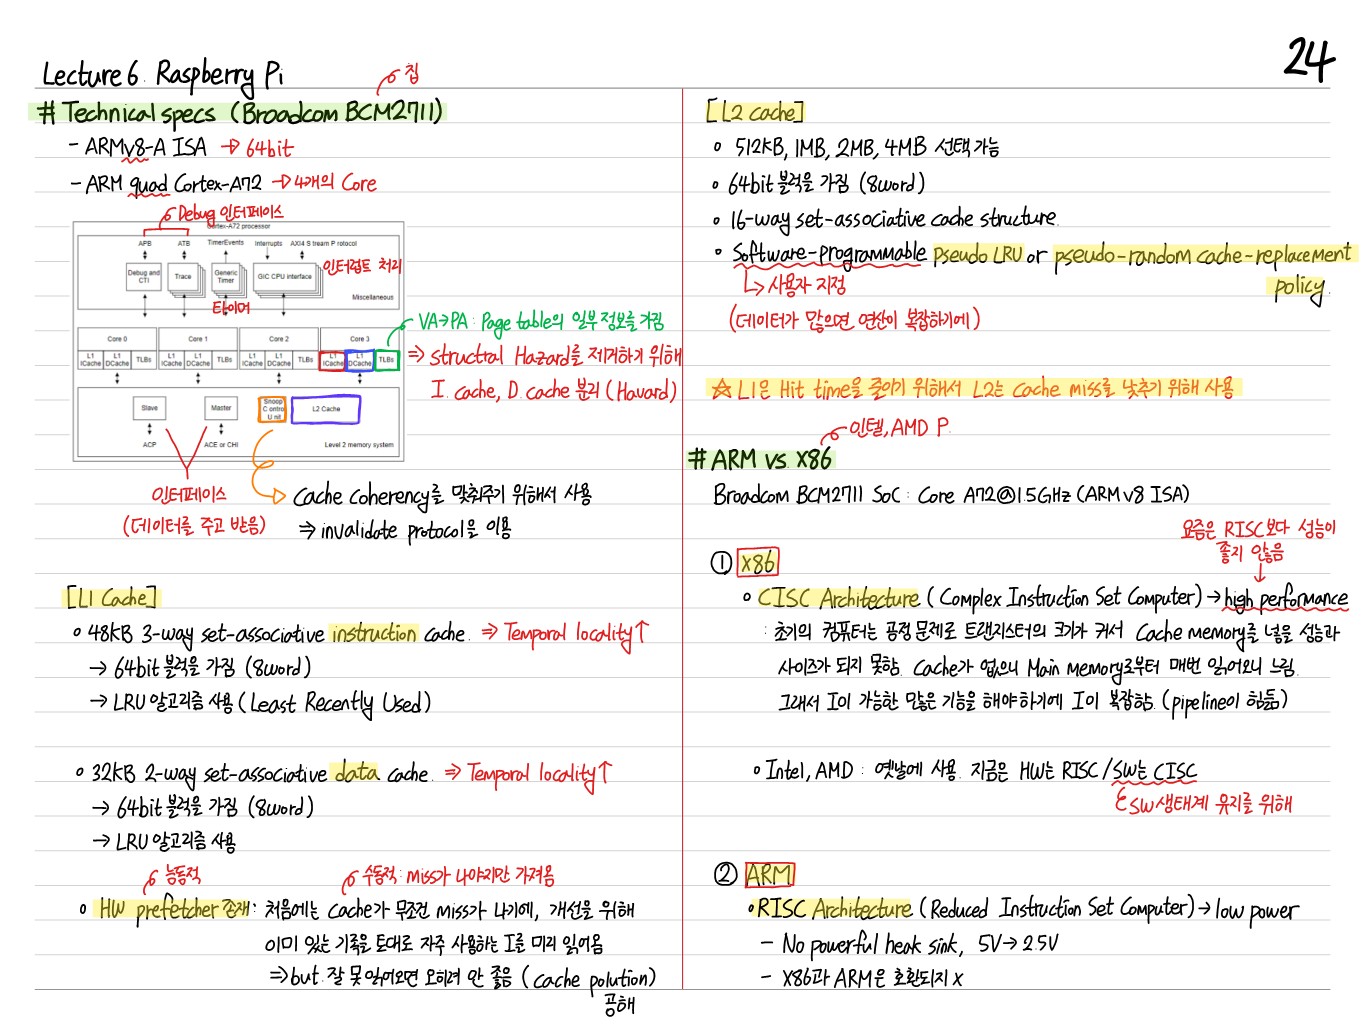 24
Lecture 6. Raspberry Pi
칩
# Technical specs (Broadcom BCM2711)
- ARMv8-A ISA → 64bit
- ARM quad Cortex-A72 → 4개의 Core
Debug 인터페이스
Cortex-A72 processor
APB ATB TimerEvents Interrupts AXI4 Stream P rotocol
Debug and CTI Trace Generic Timer GIC CPU interface
인터럽트 처리
타이머
Miscellaneous
VA→PA : Page table의 일부 정보를 가짐
Core 0 Core 1 Core 2 Core 3
L1 ICache L1 DCache TLBs L1 ICache L1 DCache TLBs L1 ICache L1 DCache TLBs L1 ICache L1 DCache TLBs
⇒ structral Hazard를 제거하기 위해
I. cache, D. cache 분리 (Havard)
Slave Master Snoop C ontrol U nit L2 Cache
ACP ACE or CHI Level 2 memory system
인터페이스
(데이터를 주고 받음)
Cache coherency를 맞춰주기 위해서 사용
⇒ invalidate protocol을 이용
[L1 Cache]
∘ 48KB 3-way set-associative instruction cache. ⇒ Temporal locality↑
→ 64bit 블럭을 가짐 (8word)
→ LRU 알고리즘 사용 (Least Recently Used)
∘ 32KB 2-way set-associative data cache. ⇒ Temporal locality↑
→ 64bit 블럭을 가짐 (8word)
→ LRU 알고리즘 사용
능동적
수동적 : miss가 나야지만 가져옴
∘ HW prefetcher 존재 : 처음에는 Cache가 무조건 miss가 나기에, 개선을 위해
이미 있는 기록을 토대로 자주 사용하는 I를 미리 읽어옴
⇒ but 잘 못 읽어오면 오히려 안 좋음 (cache polution)
공해
[L2 cache]
∘ 512KB, 1MB, 2MB, 4MB 선택 가능
∘ 64bit 블럭을 가짐 (8word)
∘ 16-way set-associative cache structure.
∘ Software-programmable pseudo LRU or pseudo-random cache-replacement
policy.
↳ 사용자 지정
(데이터가 많으면 연산이 복잡하기에)
☆ L1은 Hit time을 줄이기 위해서 L2는 Cache miss를 낮추기 위해 사용
인텔, AMD P.
# ARM vs. X86
Broadcom BCM2711 SoC : Core A72@1.5GHz (ARMv8 ISA)
요즘은 RISC보다 성능이
좋지 않음
① X86
∘ CISC Architecture (Complex Instruction Set Computer) → high performance
: 초기의 컴퓨터는 공정 문제로 트랜지스터의 크기가 커서 Cache memory를 넣을 성능과
사이즈가 되지 못함. Cache가 없으니 Main memory로부터 매번 읽어오니 느림.
그래서 I이 가능한 많은 기능을 해야하기에 I이 복잡함. (pipeline이 힘듦)
∘ Intel, AMD : 옛날에 사용. 지금은 HW는 RISC / SW는 CISC
SW 생태계 유지를 위해
② ARM
∘ RISC Architecture (Reduced Instruction Set Computer) → low power
- No powerful heak sink, 5V → 2.5V
- X86과 ARM은 호환되지 X